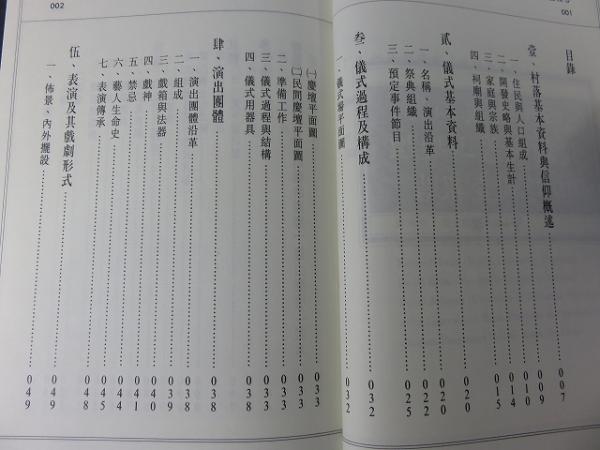 001
目錄
壹、村落基本資料與信仰概述……007
一、住民與人口組成……009
二、開發史略與基本生計……010
三、家庭與宗族……014
四、祠廟與組織……015
貳、儀式基本資料……020
一、名稱、演出沿革……020
二、祭典組織……022
三、預定事件節目……025
叁、儀式過程及構成……032
一、儀式場平面圖……032
002
㈠慶壇平面圖……033
㈡民間慶壇平面圖……033
二、準備工作……033
三、儀式過程與結構……033
四、儀式用器具……038
肆、演出團體……038
一、演出團體沿革……038
二、組成……039
三、戲箱與法器……040
四、戲神……041
五、禁忌……044
六、藝人生命史……045
七、表演傳承……048
伍、表演及其戲劇形式……049
一、佈景、內外擺設……049